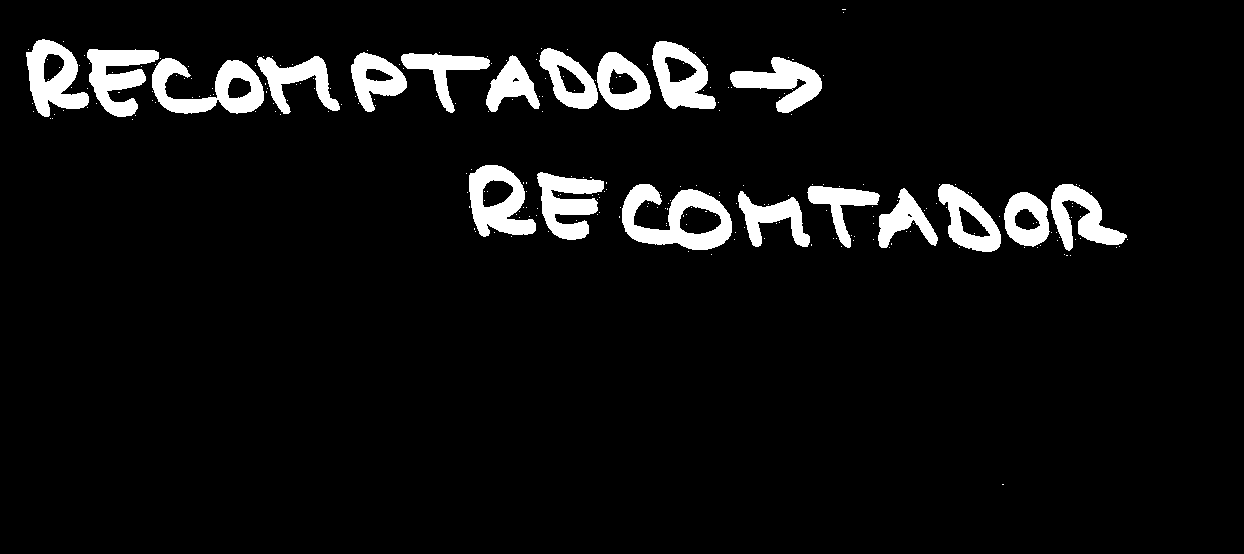 RECOMPTADOR →
RECOMTADOR